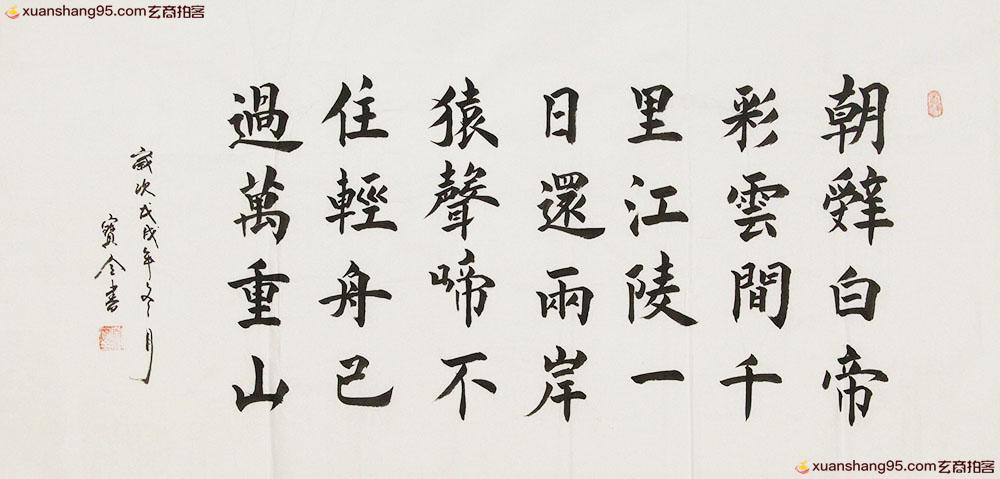 xuanshang95.com玄商拍客
朝辤白帝
彩雲間千
里江陵一
日還兩岸
猿聲啼不
住輕舟已
過萬重山
歲次戊戌年冬月
寶全書
xuanshang95.com玄商拍客